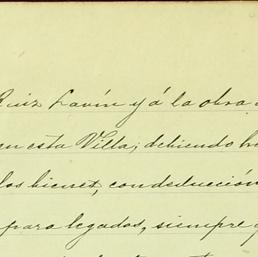 Ruiz Lavín y á la obra
en esta Villa; debiendo
los bienes, con deducción
para legados, siempre